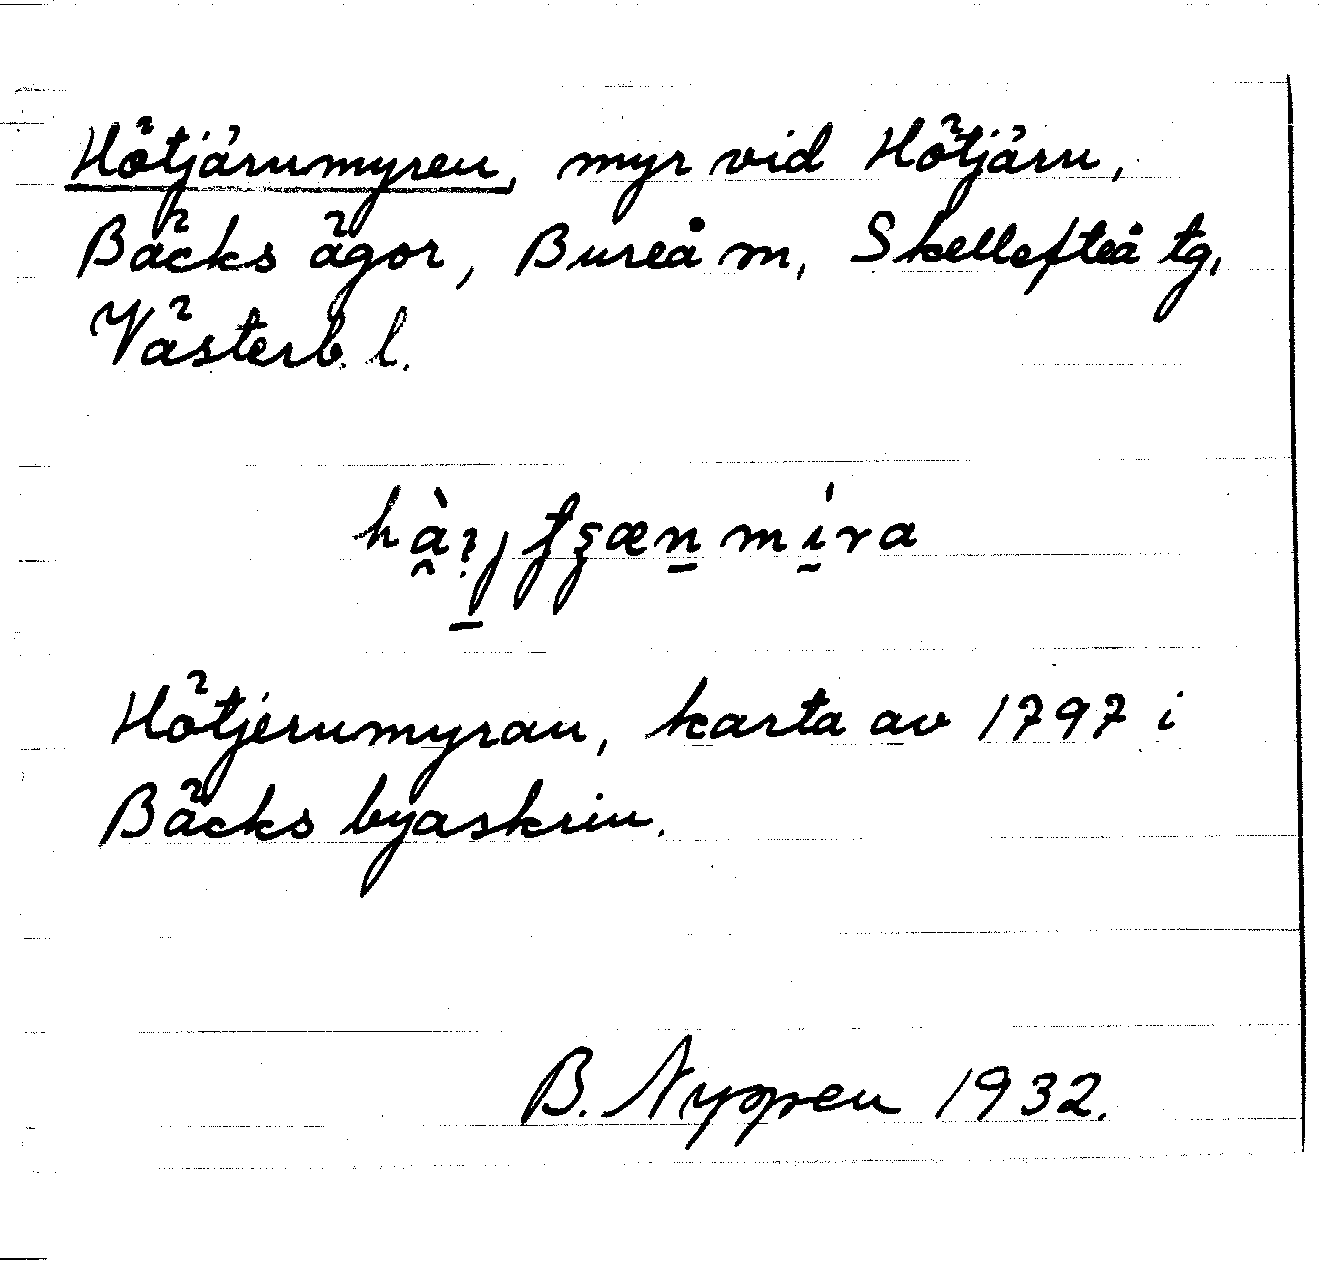 Hötjärnmyren, myr vid Hötjärn,
Bäcks ägor, Bureå m, Skellefteå tg,
Västerb. l.
Hötjernmyran, karta av 1797 i
Bäcks byaskrin.
B. Nyppen 1932.